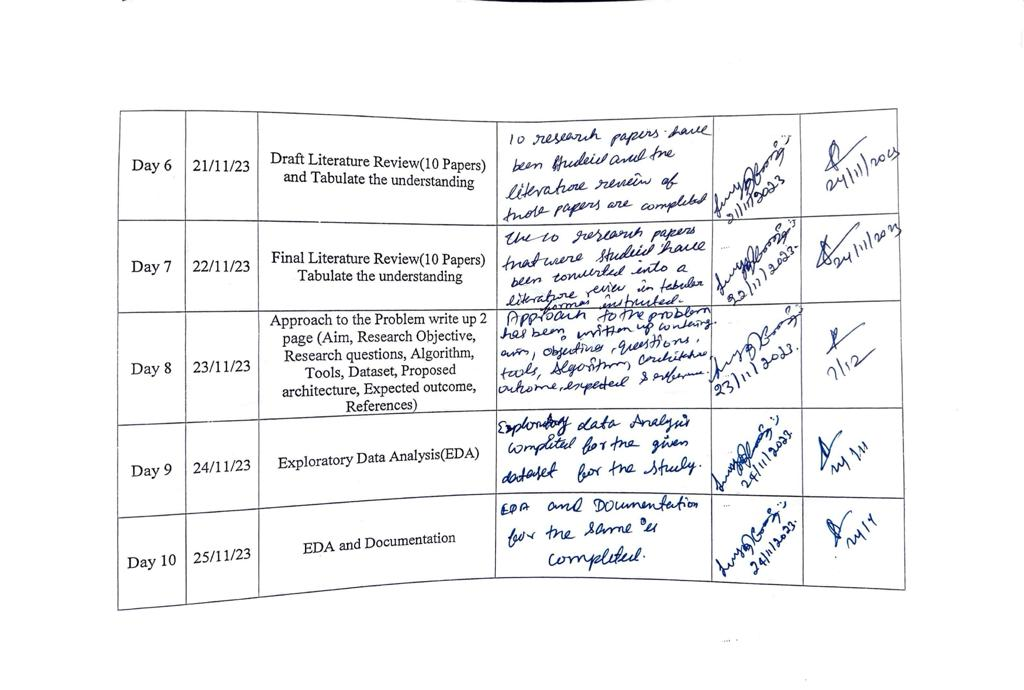 Day 6
21/11/23
Draft Literature Review(10 Papers)
and Tabulate the understanding
10 research papers have
been studeid and the
literature review of
those papers are completed
21/11/2023
24/11/2023
Day 7
22/11/23
Final Literature Review(10 Papers)
Tabulate the understanding
The 10 research papers
that were studeid have
been converted into a
literature review in tabular
format instructed.
22/11/2023.
24/11/2023
Day 8
23/11/23
Approach to the Problem write up 2
page (Aim, Research Objective,
Research questions, Algorithm,
Tools, Dataset, Proposed
architecture, Expected outcome,
References)
Approach to the problem
has been written up containing
aim, objectives, questions,
tools, Algorithm, architecture
outcome, expected & reference.
23/11/2023.
7/12
Day 9
24/11/23
Exploratory Data Analysis(EDA)
Exploratory data Analysis
completed for the given
dataset for the study.
24/11/2023.
24/11
Day 10
25/11/23
EDA and Documentation
EDA and Documentation
for the same is
completed.
24/11/2023.